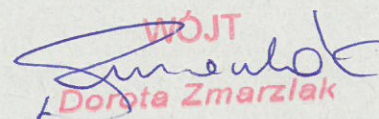 WÓJT
Dorota Zmarzlak